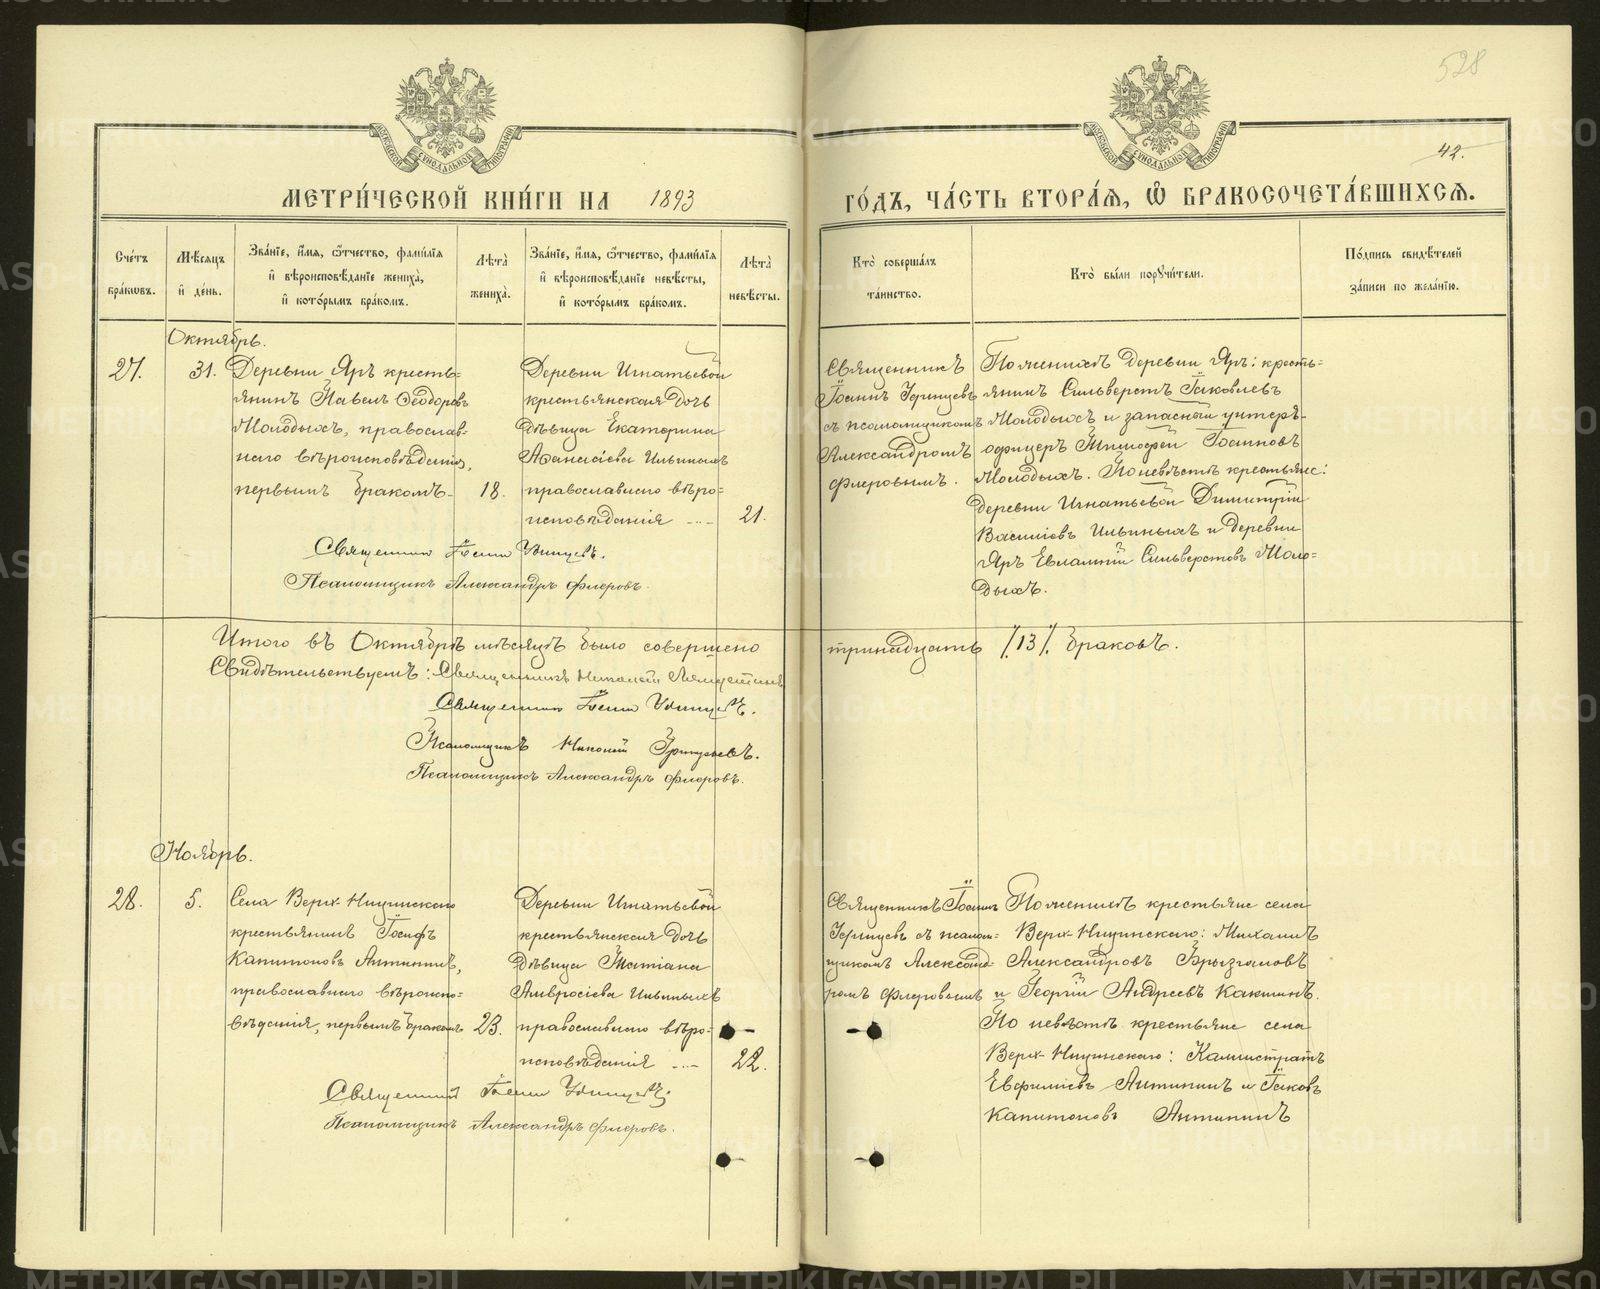 528
42.
МЕТРИ́ЧЕСКОЙ КНИ́ГИ НА 1893 ГО́ДЪ, ЧА́СТЬ ВТОРА́Я, Ѿ БРАКОСОЧЕТА́ВШИХСЯ.
Сче́тъ бра́кѡвъ.
Мѣ́сяцъ и́ де́нь.
Зва́нїе, и́мя, ѿтчество, фами́лїя и́ вѣроисповѣ́данїе жениха̀, и́ кото́рымъ бра́комъ.
Лѣта̀ жениха̀.
Зва́нїе, и́мя, ѿтчество, фами́лїя и́ вѣроисповѣ́данїе невѣ́сты, и́ кото́рымъ бра́комъ.
Лѣта̀ невѣ́сты.
Кто̀ соверша́лъ та́инство.
Кто̀ бы́ли пору́чители.
По́дпись свидѣ́телей за́писи по жела́нїю.
Октябрь.
27.
31.
Деревни Яръ кресть=
янинъ Павелъ Ѳеодоровъ
Молодыхъ, православ=
наго вѣроисповѣданія,
первымъ бракомъ.
18.
Деревни Игнатьевой
крестьянская дочь
дѣвица Екатерина
Аѳанасіева Ильиныхъ
православнаго вѣро=
исповѣданія
21.
Священникъ
Іоаннъ
съ псаломщикомъ
Александромъ
Флеровымъ.
По женихѣ деревни Яръ: кресть=
янинъ Сильверстъ Іаковлевъ
Молодыхъ и запасный унтеръ-
офицеръ Тимофей Іоанновъ
Молодыхъ. По невѣстѣ крестьяне:
деревни Игнатьевой Димитрій
Василіевъ Ильиныхъ и деревни
Яръ Евлампій Сильверстовъ Моло=
дыхъ.
Священникъ Іоаннъ
Псаломщикъ Александръ Флеровъ.
Итого въ Октябрѣ мѣсяцѣ было совершено тринадцать /13/ браковъ.
Свидѣтельствуемъ: Священникъ Николай
Священникъ Іоаннъ
Псаломщикъ
Псаломщикъ Александръ Флеровъ.
Ноябрь.
28.
5.
Села Верх-Ницинскаго
крестьянинъ Іосифъ
Капитоновъ Антипинъ,
православнаго вѣроиспо=
вѣданія, первымъ бракомъ
23.
Деревни Игнатьевой
крестьянская дочь
дѣвица Татіана
Амвросіева Ильиныхъ
православнаго вѣро=
исповѣданія
22.
Священникъ Іоаннъ
съ псалом=
щикомъ Александ=
ромъ Флеровымъ
По женихѣ крестьяне села
Верх-Ницинскаго: Михаилъ
Александровъ Брызгаловъ
и Георгій Андреевъ Какшинъ.
По невѣстѣ крестьяне села
Верх-Ницинскаго: Каллистратъ
Евфиміевъ Антипинъ и Іаковъ
Капитоновъ Антипинъ
Священникъ Іоаннъ
Псаломщикъ Александръ Флеровъ.
METRIKI.GASO-URAL.RU